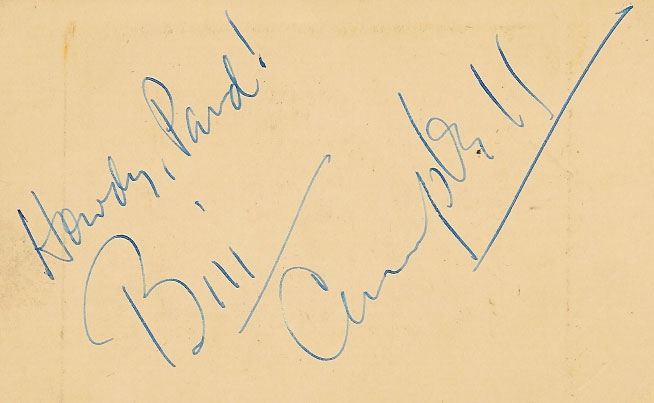 Howdy, Pard!
Bill Campbell